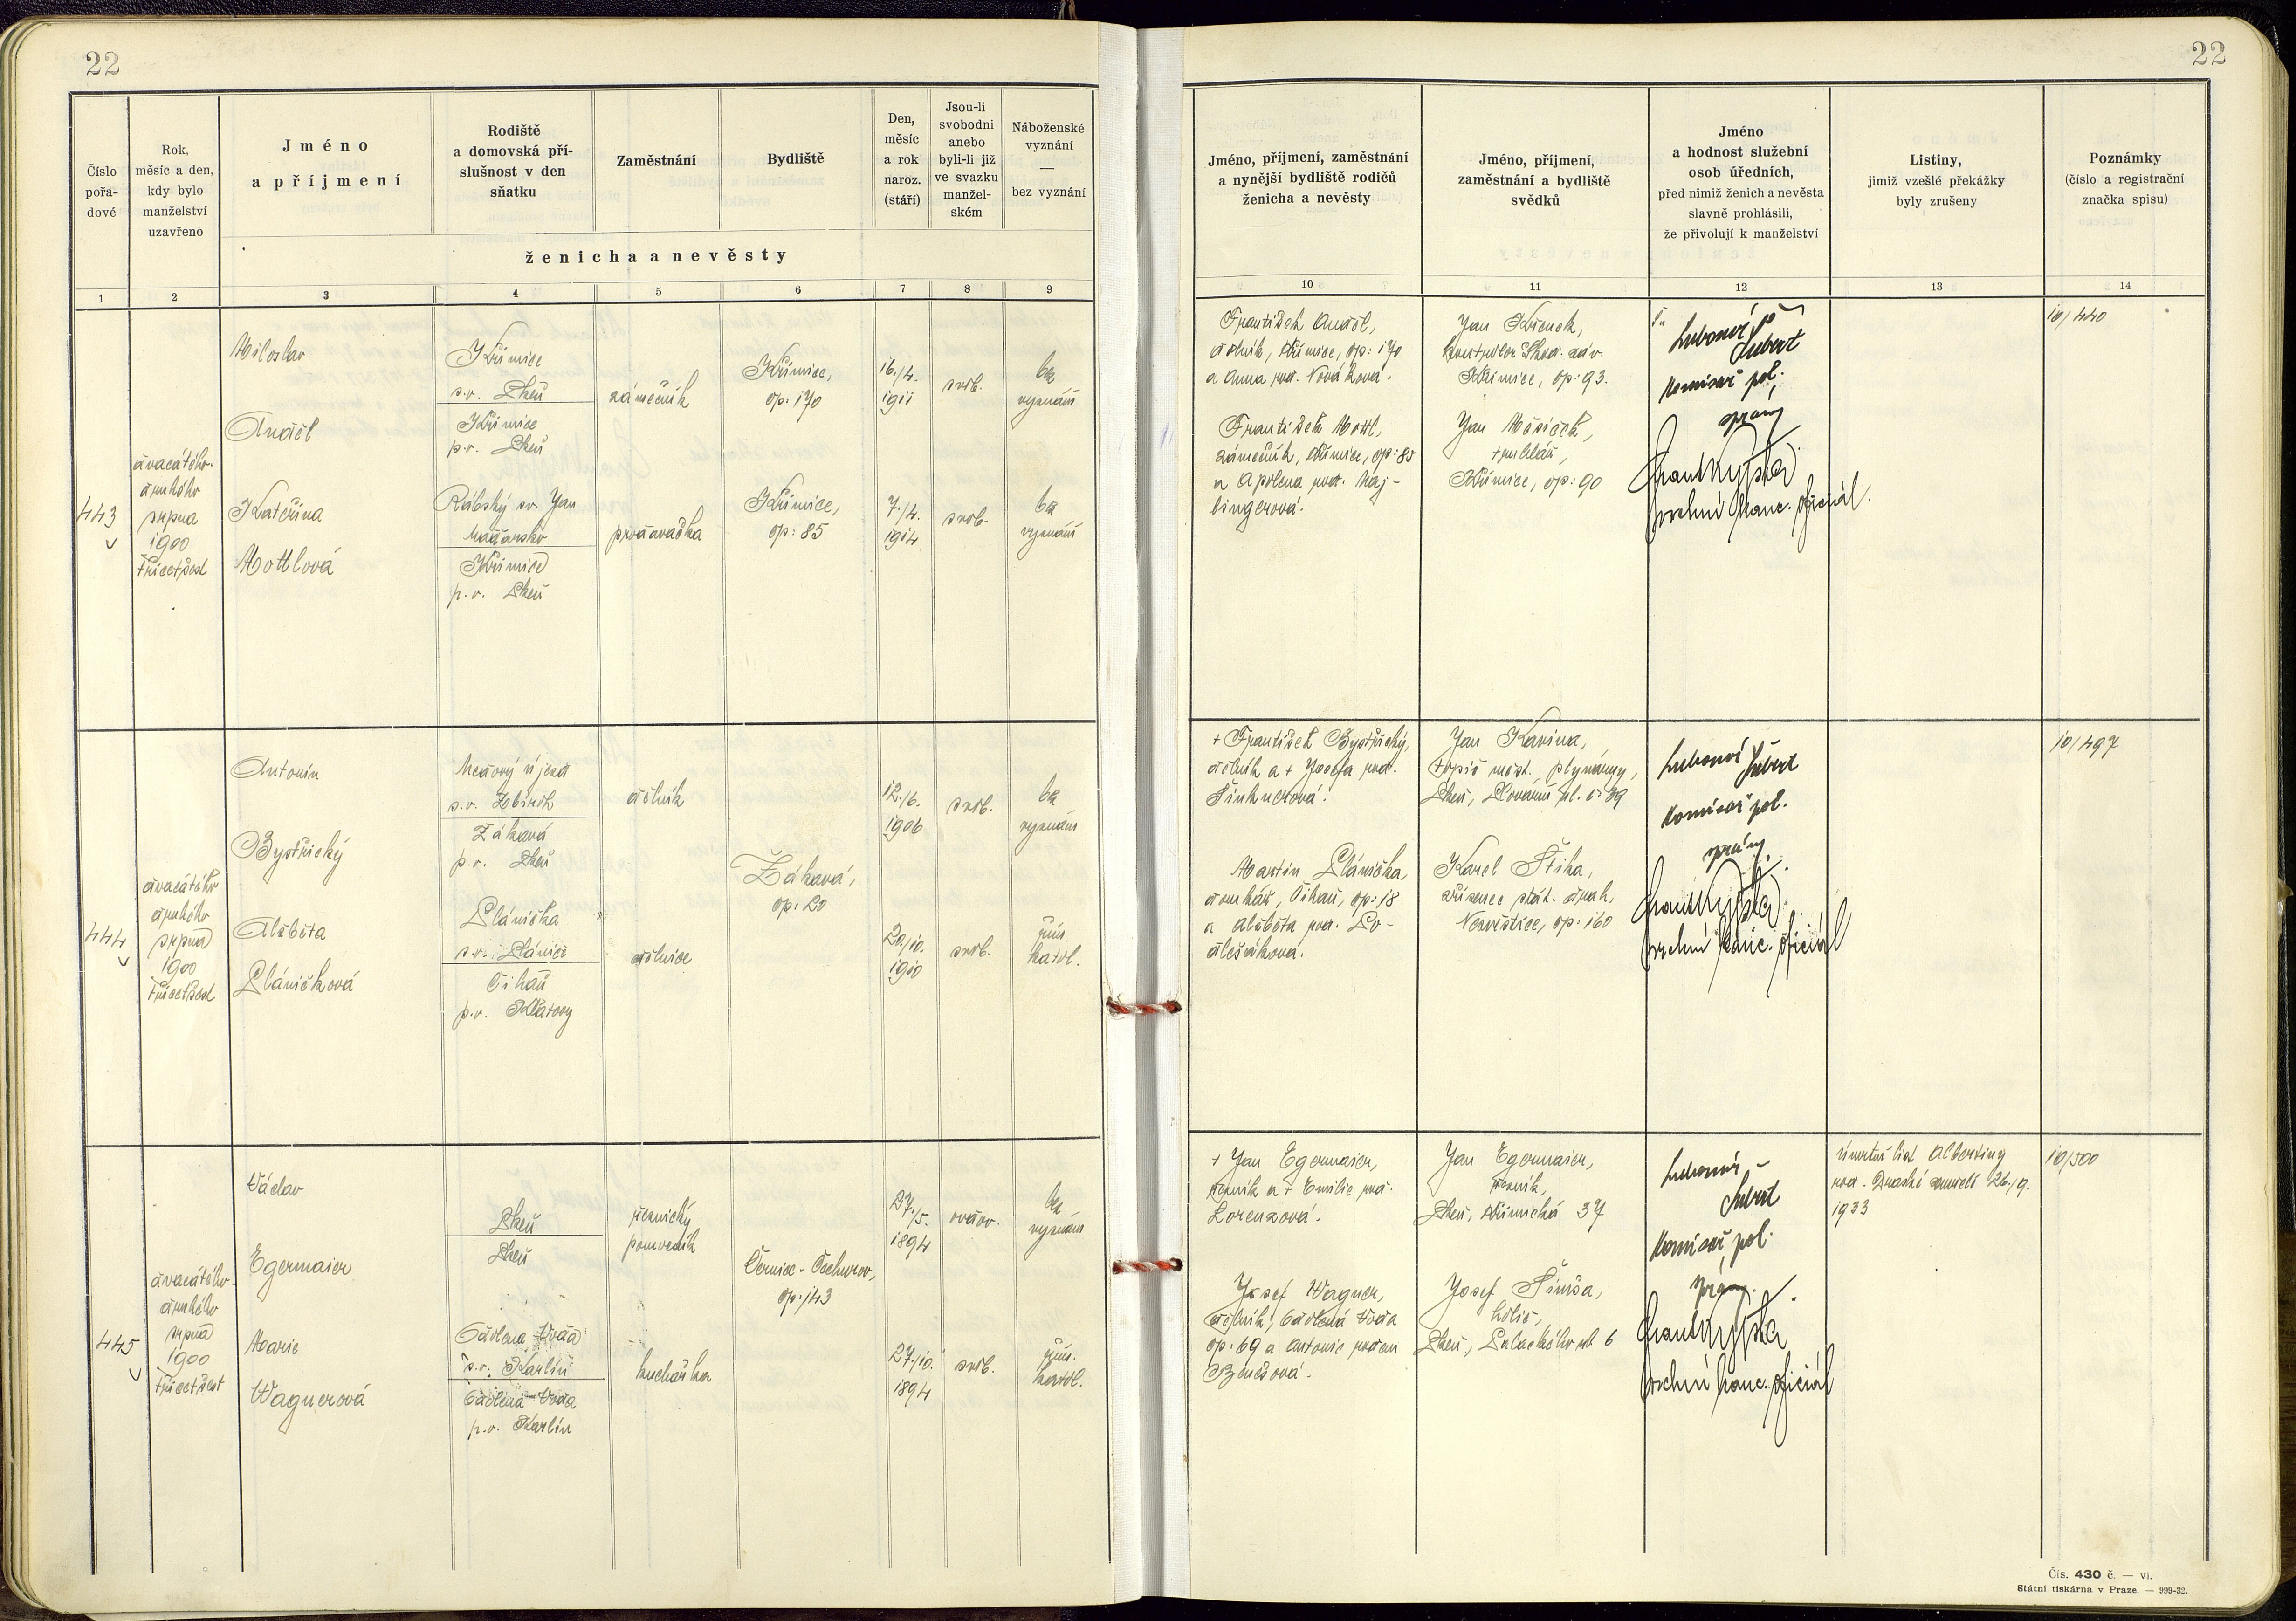 22
22
Číslo
pořa-
dové
Rok,
měsíc a den,
kdy bylo
manželství
uzavřeno
Jméno
a příjmení
Rodiště
a domovská pří-
slušnost v den
sňatku
Zaměstnání
Bydliště
Den,
měsíc
a rok
naroz.
(stáří)
Jsou-li
svobodni
anebo
byli-li již
ve svazku
manžel-
ském
Náboženské
vyznání
—
bez vyznání
ženicha a nevěsty
Jméno, příjmení, zaměstnání
a nynější bydliště rodičů
ženicha a nevěsty
Jméno, příjmení,
zaměstnání a bydliště
svědků
Jméno
a hodnost služební
osob úředních,
před nimiž ženich a nevěsta
slavně prohlásili,
že přivolují k manželství
Listiny,
jimiž vzešlé překážky
byly zrušeny
Poznámky
(číslo a registrační
značka spisu)
1 2 3 4 5 6 7 8 9 10 11 12 13 14
443
dvacátého
druhého
srpna
1900
třicetšest
Miloslav
Anděl
Křimice
s.o. Plzeň
Křimice
p.o. Plzeň
zámečník
Křimice,
čp: 170
16./4.
1911
svob.
bez
vyznání
Kateřina
Mottlová
Rábský sv. Jan
Maďarsko
Křimice
p.o. Plzeň
prodavačka
Křimice,
čp: 85
7./4.
1914
svob.
bez
vyznání
František Anděl,
dělník, Křimice, čp: 170
a Anna roz. Nováková.
František Mottl,
zámečník, Křimice, čp: 85
a Apolena roz. Haj-
bingerová.
Jan Křenek,
konstruktor Škod. záv.
Křimice, čp: 93.
Jan Mašíček,
truhlář,
Křimice, čp: 90
Lubomír
Šubert
komisař pol.
správy
vrchní kanc. oficiál.
10/440
444
dvacátého
druhého
srpna
1900
třicetšest
Antonín
Bystřický
Medový Újezd
s.o. Zbiroh
Zákava
p.o. Plzeň
dělník
Zákava,
čp: 20
12./6.
1906
svob.
bez
vyznání
Alžběta
Pláničková
Plánička
s.o. Plánice
Číhaň
p.o. Klatovy
dělnice
20./10.
1910
svob.
řím.
katol.
+ František Bystřický,
dělník a + Josefa roz.
Šinknerová.
Martin Plánička,
domkář, Číhaň, čp: 18
a Alžběta roz. Po-
dlešáková.
Jan Kavina,
topič měst. plynárny,
Plzeň, Slovanů ul. č: 39
Karel Štika,
zřízenec stát. drah,
Nezvěstice, čp: 160
Lubomír Šubert
komisař pol.
správy.
vrchní kanc. oficiál
10/497
445
dvacátého
druhého
srpna
1900
třicetšest
Václav
Egermaier
Plzeň
Plzeň
řeznický
pomocník
Černice - Čechurov,
čp: 143
27./5.
1894
ovdov.
bez
vyznání
Marie
Wagnerová
s.o. Karlín
p.o. Karlín
kuchařka
27./10.
1894
svob.
řím.
katol.
+ Jan Egermaier,
řezník a + Emilie roz.
Lorenzová.
Josef Wagner,
dělník,
čp: 69 a Antonie rozen
Benešová.
Jan Egermaier,
řezník,
Plzeň, Křimická 37
Josef Šimsa,
holič,
Plzeň, Palackého ul 6
Lubomír
Šubert
komisař pol.
správy.
vrchní kanc. oficiál
úmrtní list Albertiny
roz. zemřelé 26./9.
1933
10/500
Čís. 430 č. — vi.
Státní tiskárna v Praze. — 999-32.